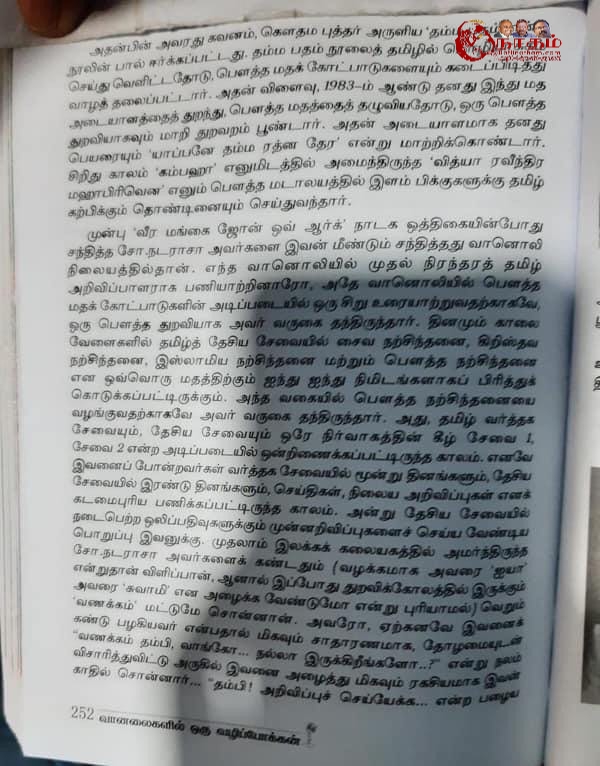 நாதம்
அதன்பின் அவரது கவனம், கௌதம புத்தர் அருளிய 'தம்ம
நூலின் பால் ஈர்க்கப்பட்டது. தம்ம பதம் நூலைத் தமிழில்
செய்து வெளிட்டதோடு, பௌத்த மதக் கோட்பாடுகளையும் கடைப்பிடித்து
வாழத் தலைப்பட்டார். அதன் விளைவு, 1983-ம் ஆண்டு தனது இந்து மத
அடையாளத்தைத் துறந்து, பௌத்த மதத்தைத் தழுவியதோடு, ஒரு பௌத்த
துறவியாகவும் மாறி துறவறம் பூண்டார். அதன் அடையாளமாக தனது
பெயரையும் 'யாப்பனே தம்ம ரத்ன தேர' என்று மாற்றிக்கொண்டார்.
சிறிது காலம் 'கம்பஹா' எனுமிடத்தில் அமைந்திருந்த 'வித்யா ரவீந்திர
மஹாபிரிவென' எனும் பௌத்த மடாலயத்தில் இளம் பிக்குகளுக்கு தமிழ்
கற்பிக்கும் தொண்டினையும் செய்துவந்தார்.
முன்பு 'வீர மங்கை ஜோன் ஒவ் ஆர்க்' நாடக ஒத்திகையின்போது
சந்தித்த சோ.நடராசா அவர்களை இவன் மீண்டும் சந்தித்தது வானொலி
நிலையத்தில்தான். எந்த வானொலியில் முதல் நிரந்தரத் தமிழ்
அறிவிப்பாளராக பணியாற்றினாரோ, அதே வானொலியில் பௌத்த
மதக் கோட்பாடுகளின் அடிப்படையில் ஒரு சிறு உரையாற்றுவதற்காகவே,
ஒரு பௌத்த துறவியாக அவர் வருகை தந்திருந்தார். தினமும் காலை
வேளைகளில் தமிழ்த் தேசிய சேவையில் சைவ நற்சிந்தனை, கிறிஸ்தவ
நற்சிந்தனை, இஸ்லாமிய நற்சிந்தனை மற்றும் பௌத்த நற்சிந்தனை
என ஒவ்வொரு மதத்திற்கும் ஐந்து ஐந்து நிமிடங்களாகப் பிரித்துக்
கொடுக்கப்பட்டிருக்கும். அந்த வகையில் பௌத்த நற்சிந்தனையை
வழங்குவதற்காகவே அவர் வருகை தந்திருந்தார். அது, தமிழ் வர்த்தக
சேவையும், தேசிய சேவையும் ஒரே நிர்வாகத்தின் கீழ் சேவை 1,
சேவை 2 என்ற அடிப்படையில் ஒன்றிணைக்கப்பட்டிருந்த காலம். எனவே
இவனைப் போன்றவர்கள் வர்த்தக சேவையில் மூன்று தினங்களும், தேசிய
சேவையில் இரண்டு தினங்களும், செய்திகள், நிலைய அறிவிப்புகள் எனக்
கடமைபுரிய பணிக்கப்பட்டிருந்த காலம். அன்று தேசிய சேவையில்
நடைபெற்ற ஒலிப்பதிவுகளுக்கும் முன்னறிவிப்புகளைச் செய்ய வேண்டிய
பொறுப்பு இவனுக்கு. முதலாம் இலக்கக் கலையகத்தில் அமர்ந்திருந்த
சோ.நடராசா அவர்களைக் கண்டதும் (வழக்கமாக அவரை 'ஐயா'
என்றுதான் விளிப்பான், ஆனால் இப்போது துறவிக்கோலத்தில் இருக்கும்
அவரை 'சுவாமி' என அழைக்க வேண்டுமோ என்று புரியாமல்) வெறும்
'வணக்கம்' மட்டுமே சொன்னான். அவரோ, ஏற்கனவே இவனைக்
கண்டு பழகியவர் என்பதால் மிகவும் சாதாரணமாக, தோழமையுடன்
"வணக்கம் தம்பி, வாங்கோ... நல்லா இருக்கிறீங்களோ..?" என்று நலம்
விசாரித்துவிட்டு அருகில் இவனை அழைத்து மிகவும் ரகசியமாக இவன்
காதில் சொன்னார்... "தம்பி! அறிவிப்புச் செய்யேக்க... என்ற பழைய
252 வானலைகளில் ஒரு வழிப்போக்கன்